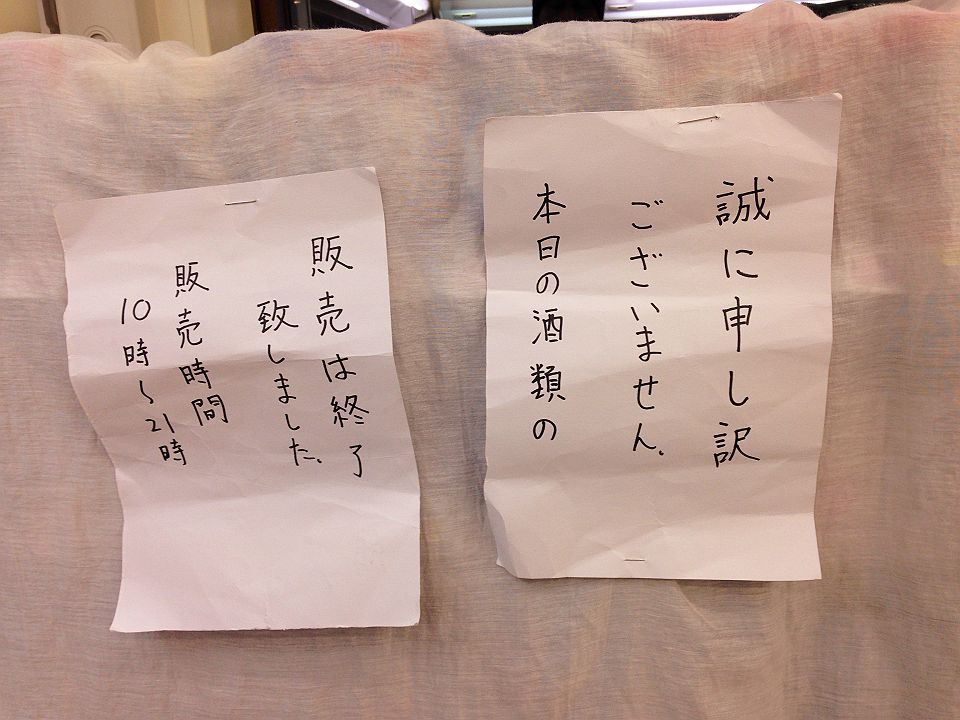 誠に申し訳
ございません。
本日の酒類の
販売は終了
致しました。
販売時間
10時〜21時